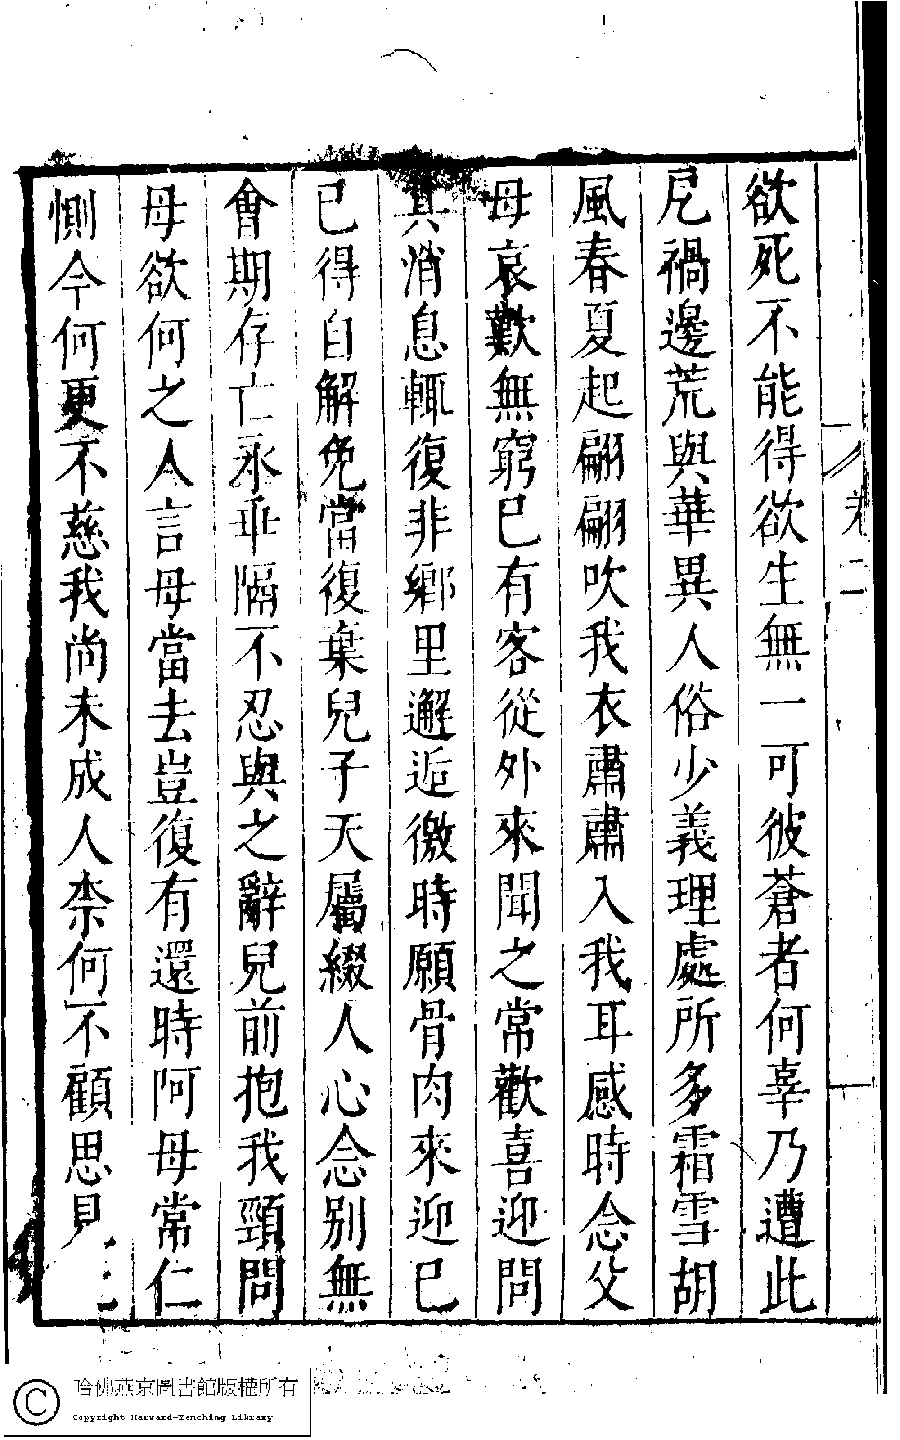 欲死不能得欲生無一可彼蒼者何辜乃遭此
戹禍邊荒與華異人俗少義理處所多霜雪胡
風春夏起翩翩吹我衣肅肅入我耳感時念父
母哀歎無窮已有客從外來聞之常歡喜迎問
其消息輒復非鄉里邂逅徼時願骨肉來迎已
已得自解免當復棄兒子天屬綴人心念別無
會期存亡永乖隔不忍與之辭兒前抱我頸問
母欲何之人言母當去豈復有還時阿母常仁
惻今何更不慈我尚未成人柰何不顧思見
卷二
哈佛燕京圖書館版權所有
Copyright Harvard-Yenching Library